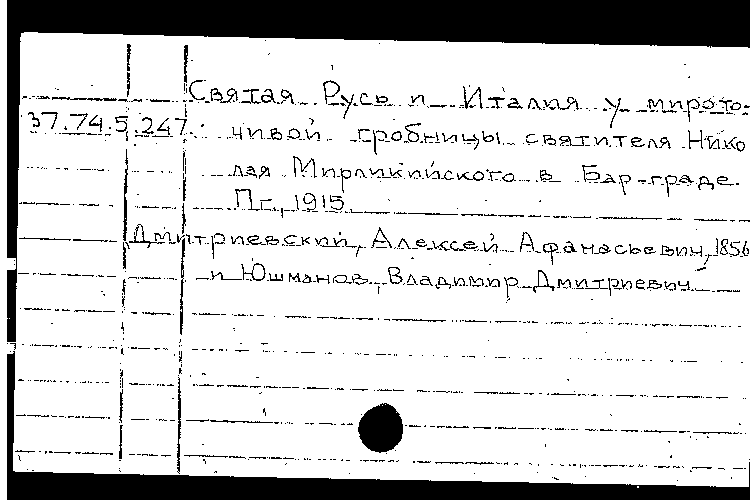 Святая Русь и Италия у мирото-
37.74.5.247. чивой гробницы святителя Нико
лая Мирликийского в Бар-граде.
Пг., 1915.
Дмитриевский, Алексей Афанасьевич, 1856
и Юшманов, Владимир Дмитриевич